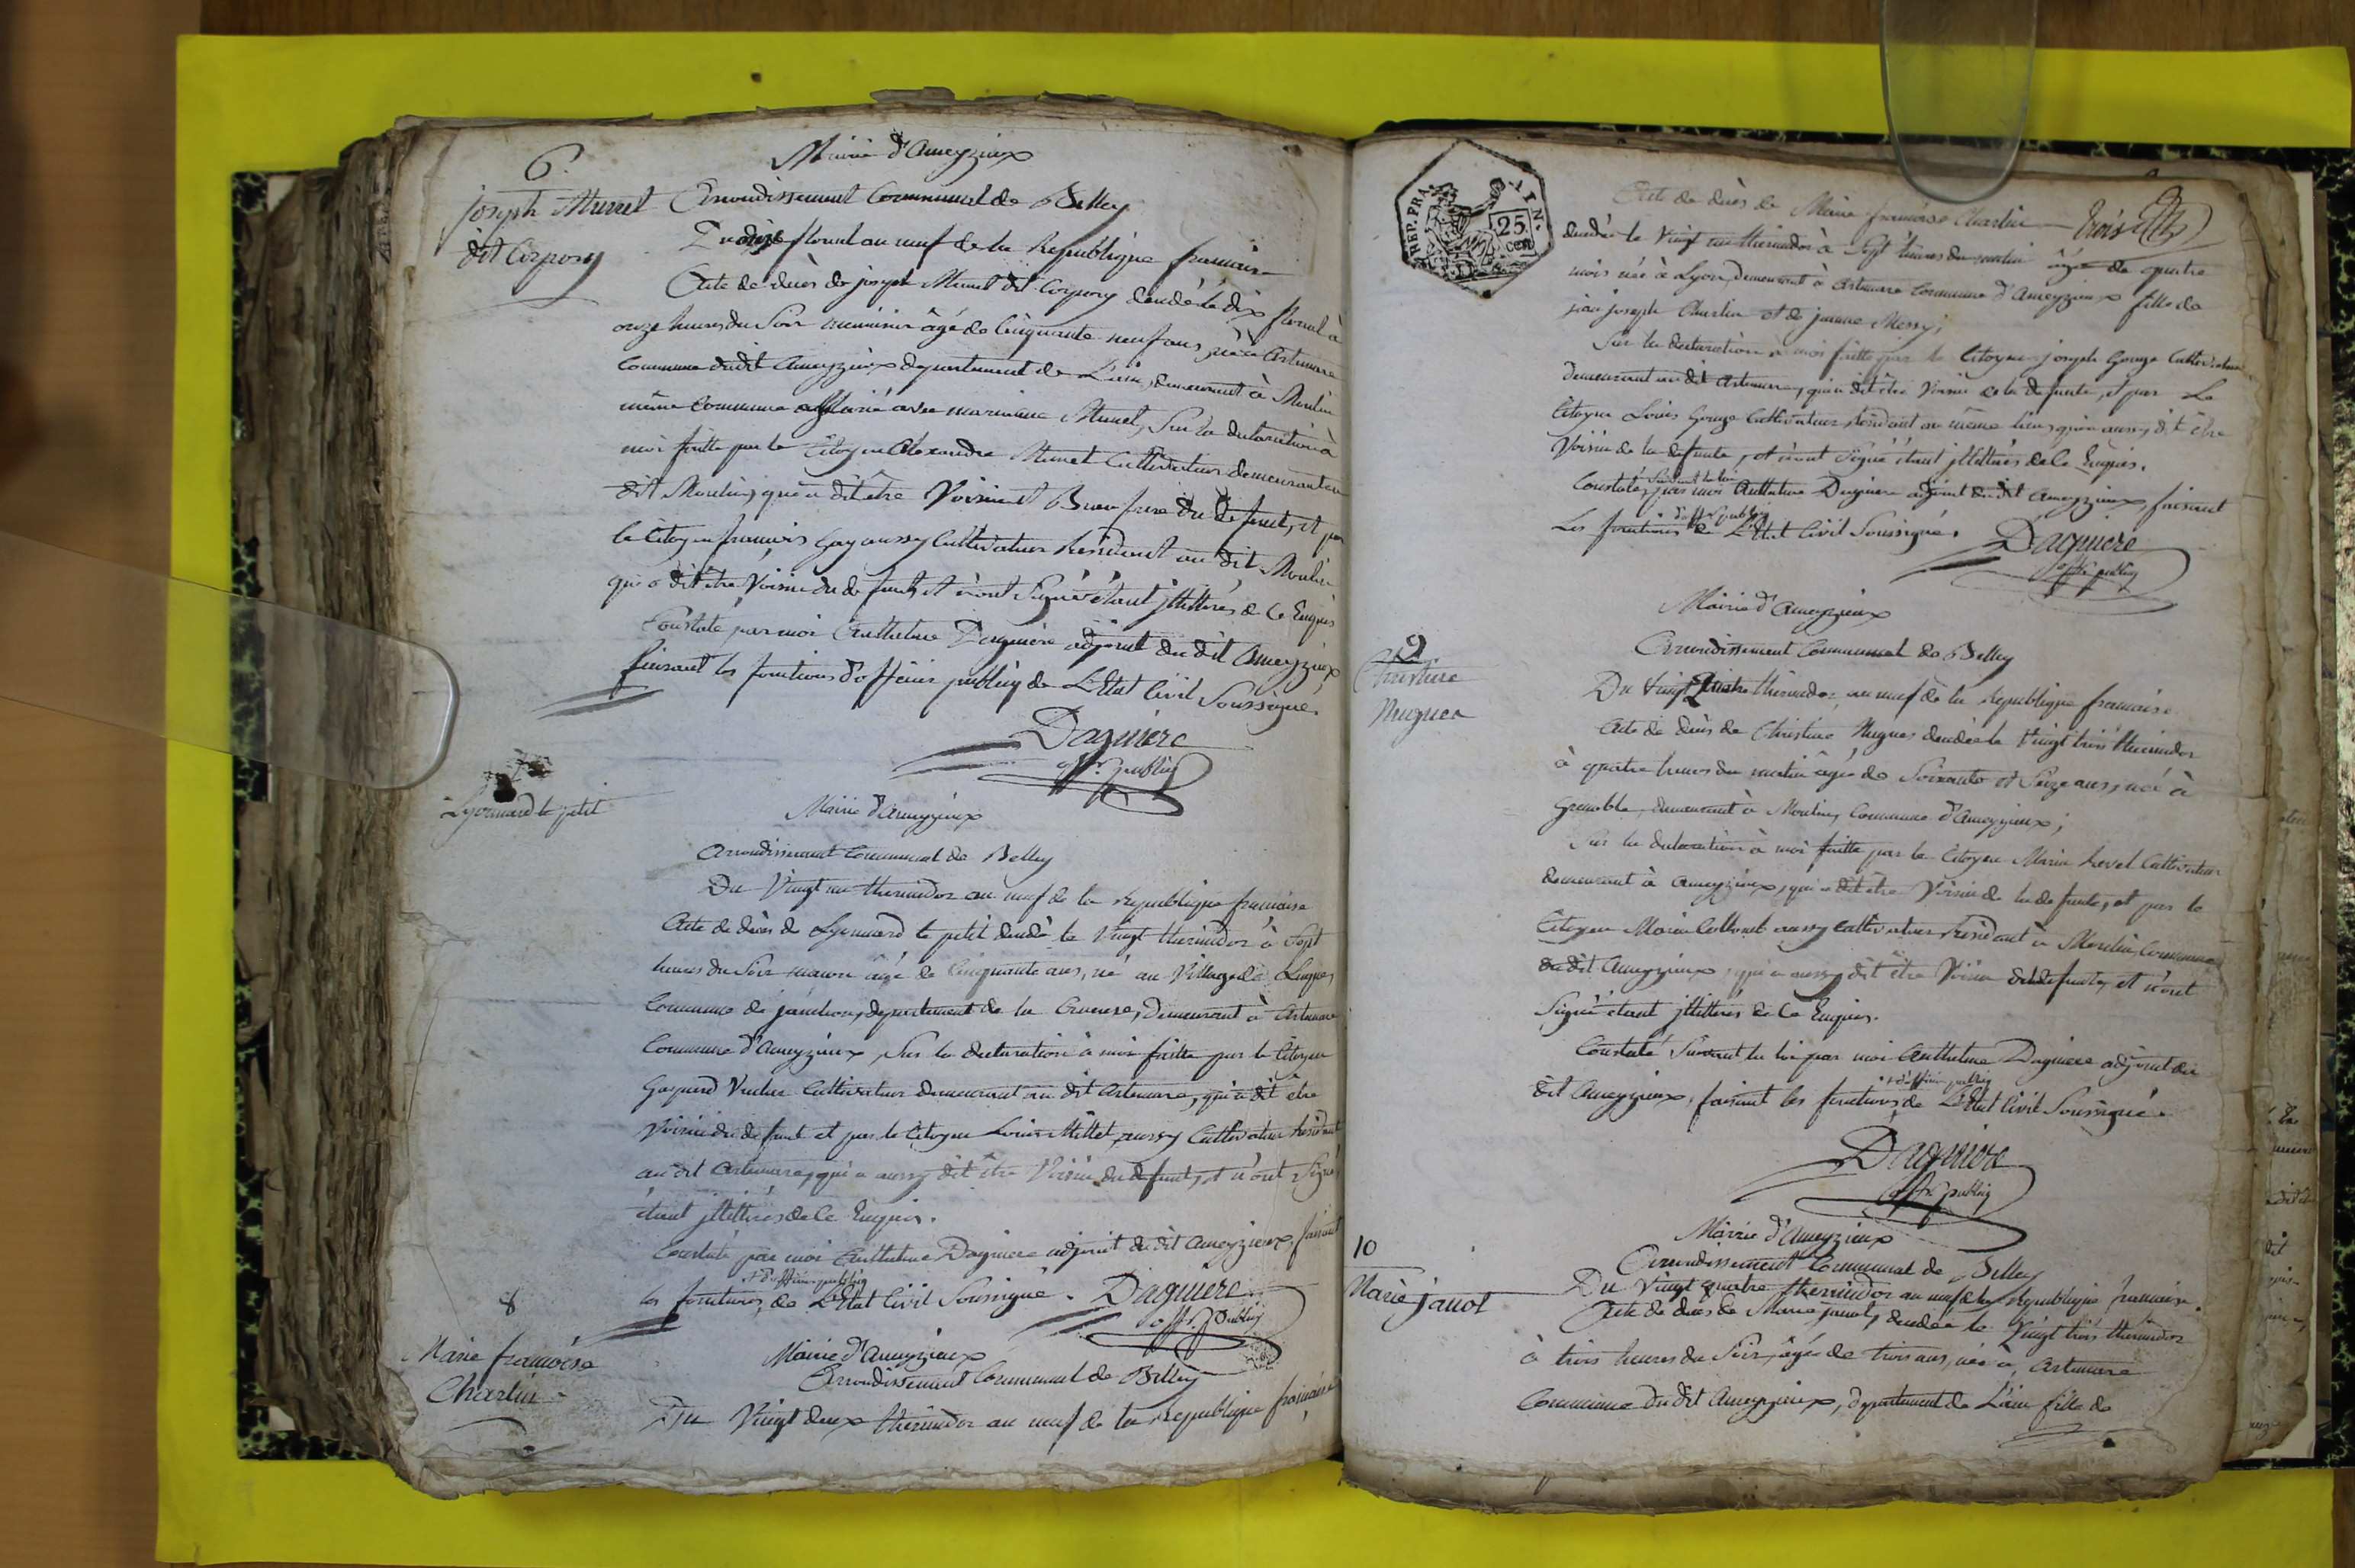 6.
Joseph Munet
dit Corpory
Mairie d'Ameyzieux
Arrondissement Communal de Belley
Du onze floreal an neuf de la Republique francaise
Acte de décès de joseph Munet dit Corpory décédé le dix floreal à
onze heures du Soir menuisier âgé de Cinquante neuf ans, né à Artemare
Commune dudit Ameyzieux département de L'ain, demeurant à Moulin
même Commune marié avec Munet, Sur la déclaration à
moi faitte par le Citoyen Alexandre Munet Cultivateur demeurant au
dit Moulin, qui a dit être Voisin et Beau frere du défunt, et par
le Citoyen francois Gay aussy Cultivateur Résidant au dit Moulin
qui a dit être Voisin du défunt et n'ont Signé étant jllittérés de Ce Enquis
Constaté par moi Anthelme Daguiere adjoint du dit Ameyzieux
faisant les fonctions d'officier publiq de L'Etat Civil Soussigné.
Daguiere
offr. publiq
Lyonnard le petit
Mairie d'Ameyzieux
Arrondissement Communal de Belley
Du Vingt un thermidor an neuf de la Republique francaise
Acte de décès de Lyonnard le petit décédé le Vingt thermidor à Sept
heures du Soir maçon âgé de Cinquante ans, né au Village de
Commune de département de la Creuse, Demeurant à Artemare
Commune d'Ameyzieux, Sur la déclaration à moi faitte par le Citoyen
Gaspard Cultivateur demeurant au dit Artemare, qui a dit être
Voisin du défunt et par le Citoyen Louis Millet aussy Cultivateur Résidant
au dit Artemare, qui a aussy dit être Voisin du défunt, et n'ont Signé
étant jllittérés de Ce Enquis.
Constaté par moi Anthelme Daguiere adjoint du dit Ameyzieux, faisant
+ d'officier publiq
les fonctions, de L'Etat Civil Soussigné. Daguiere
offr. Publiq
8
Marie francoise
Charlin
Mairie d'Ameyzieux
Arrondissement Communal de Belley
Du Vingt deux thermidor an neuf de la Republique francaise
REP. FRA.
AIN.
25
cen
Acte de décès de Marie francoise Charlin trois
décédée le Vingt un thermidor à Sept heures du matin âgée de quatre
mois née à Lyon, demeurant à Artemare Commune d'Ameyzieux fille de
joseph Charlin et de jeanne Messy;
Sur la declaration à moi faitte par le Citoyen joseph Gouge Cultivateur
demeurant au dit Artemare, qui a dit être Voisin de la défunte, et par Le
Citoyen Louis Gouge Cultivateur, Résidant au même lieu, qui a aussy dit être
Voisin de la défunte, et n'ont Signé étant jllittérés de Ce Enquis.
Suivant la loi
Constaté, par moi Anthelme Daguiere adjoint du dit Ameyzieux, faisant
+ d'offr publiq
Les fonctions de L'Etat Civil Soussigné. Daguiere
offr. publiq
9
Christine
Nugues
Mairie d'Ameyzieux
Arrondissement Communal de Belley
Du Vingt Quatre thermidor, an neuf de la Republique francaise.
Acte de décès de Christine Nugues décédée le Vingt trois thermidor
à quatre heures du matin âgée de Soixante et Seize ans, née à
Grenoble, demeurant à Moulin, Commune d'Ameyzieux;
Sur la declaration à moi faitte par le Citoyen Marin Cultivateur
demeurant à Ameyzieux, qui a dit être Voisin de la défunte, et par le
Citoyen Marin aussy Cultivateur, Résidant à Moulin, Commune
du dit Ameyzieux, qui a aussy dit être Voisin de la défunte, et n'ont
Signé étant jllittérés de Ce Enquis.
Constaté Suivant la loi par moi Anthelme Daguiere adjoint du
+ d'officier publiq
dit Ameyzieux, faisant les fonctions, de L'Etat Civil Soussigné.
Daguiere
offr. publiq
10
Marie janot
Mairie d'Ameyzieux
Arrondissement Communal de Belley
Du Vingt quatre thermidor an neuf de la Republique francaise.
Acte de décès de Marie janot, décédée le Vingt trois thermidor
à trois heures du Soir, âgée de trois ans, née à Artemare
Commune du dit Ameyzieux, département de L'ain fille de